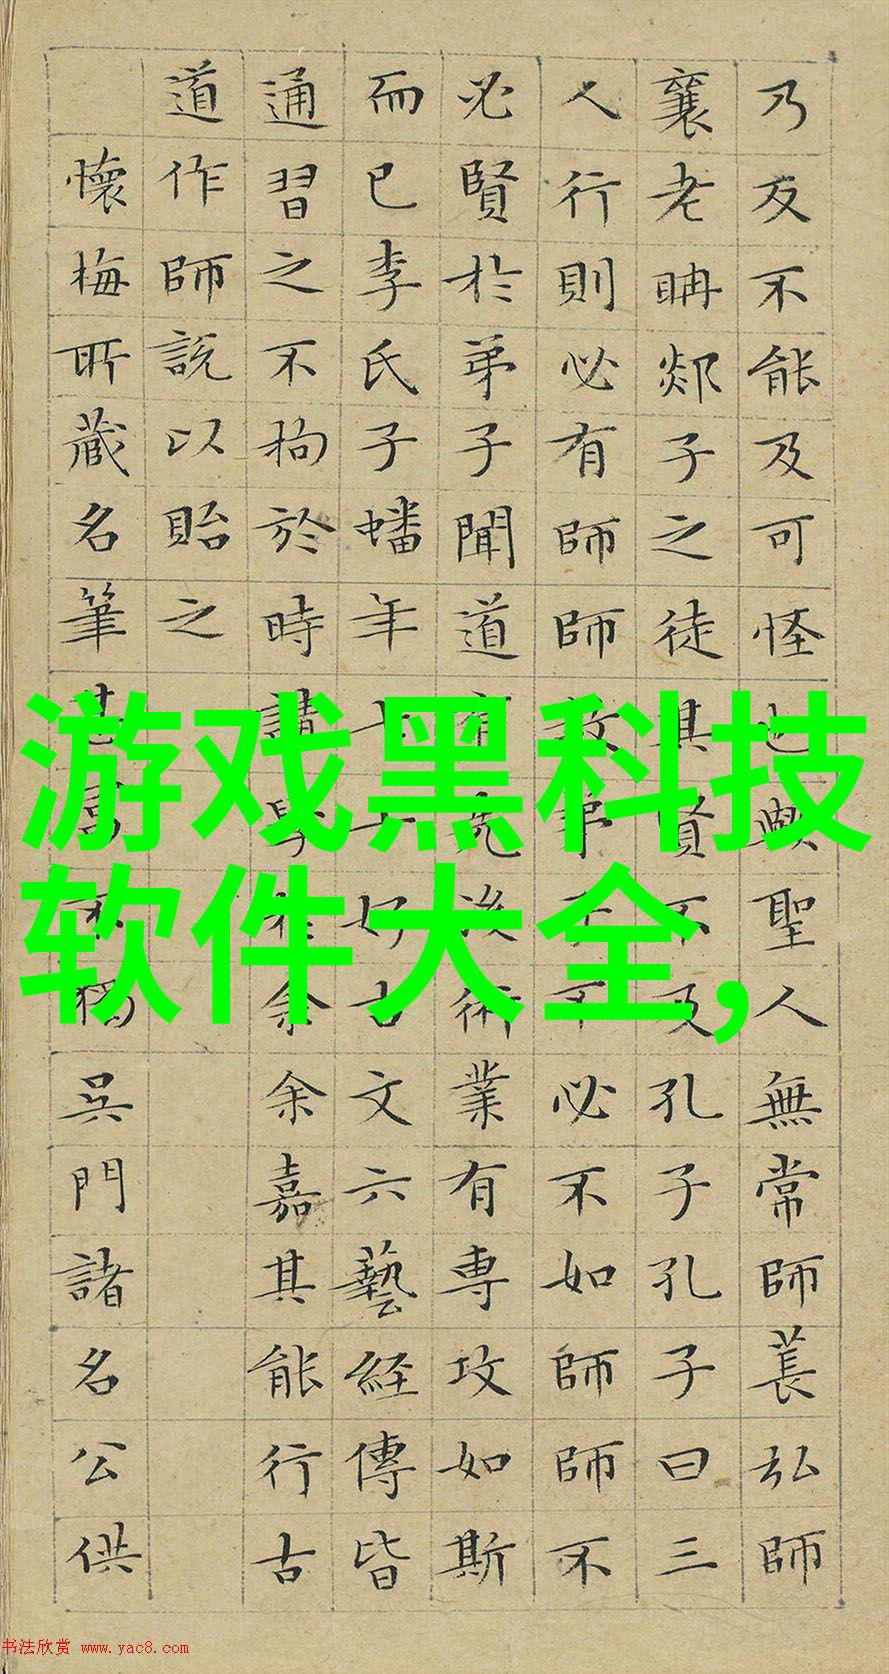 乃反不能及可怪也歟聖人無常師萇弘師
襄老聃郯子之徒其賢不及孔子孔子曰三
人行則必有師師故弟子不必不如師師不
必賢於弟子聞道有先後術業有專攻如斯
而已李氏子蟠年十七好古文六藝経傳皆
通習之不拘於時請學於余余嘉其能行古
道作師說以貽之
懷梅所藏名筆甚富不獨吳門諸名公供
游戏黑科技
软件大全,
书法欣赏 www.yac8.com